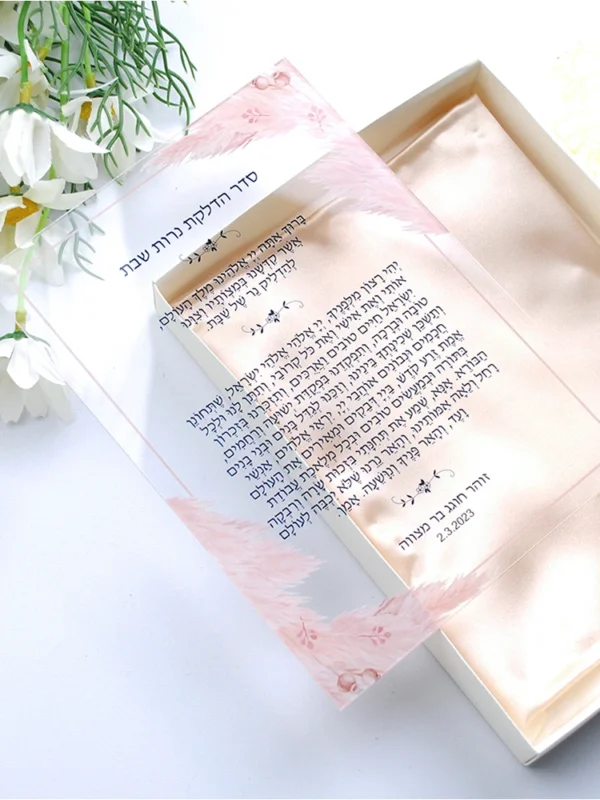 סדר הדלקת נרות שבת
בָּרוּךְ אַתָּה יְיָ אֱלֹהֵינוּ מֶלֶךְ הָעוֹלָם,
אֲשֶׁר קִדְּשָׁנוּ בְּמִצְוֹתָיו וְצִוָּנוּ
לְהַדְלִיק נֵר שֶׁל שַׁבָּת
יְהִי רָצוֹן מִלְּפָנֶיךָ, יְיָ אֱלֹהַי אֱלֹהֵי יִשְׂרָאֵל, שֶׁתְּחוֹנֵן
אוֹתִי וְאֶת אִישִׁי וְאֶת כָּל קְרוֹבַי, וְתִתֶּן לָנוּ וּלְכָל
יִשְׂרָאֵל חַיִּים טוֹבִים וַאֲרֻכִּים, וְתִזְכְּרֵנוּ בְּזִכְרוֹן
טוֹבָה וּבְרָכָה, וְתִפְקְדֵנוּ בִּפְקֻדַּת יְשׁוּעָה וְרַחֲמִים,
וְתַשְׁכֵּן שְׁכִינָתְךָ בֵּינֵינוּ, וְזַכֵּנוּ לְגַדֵּל בָּנִים וּבְנֵי בָנִים
חֲכָמִים וּנְבוֹנִים אוֹהֲבֵי יְיָ, יִרְאֵי אֱלֹהִים, אַנְשֵׁי
אֱמֶת, זֶרַע קֹדֶשׁ, בַּייָ דְּבֵקִים וּמְאִירִים אֶת הָעוֹלָם
בְּתוֹרָה וּבְמַעֲשִׂים טוֹבִים וּבְכָל מְלֶאכֶת עֲבוֹדַת
הַבּוֹרֵא. אָנָּא, שְׁמַע אֶת תְּחִנָּתִי בִּזְכוּת שָׂרָה וְרִבְקָה
רָחֵל וְלֵאָה אִמּוֹתֵינוּ, וְהָאֵר נֵרֵנוּ שֶׁלֹּא יִכְבֶּה לְעוֹלָם
וָעֶד, וְהָאֵר פָּנֶיךָ וְנִוָּשֵׁעָה. אָמֵן.
זוהר חוגג בר מצווה
2.3.2023